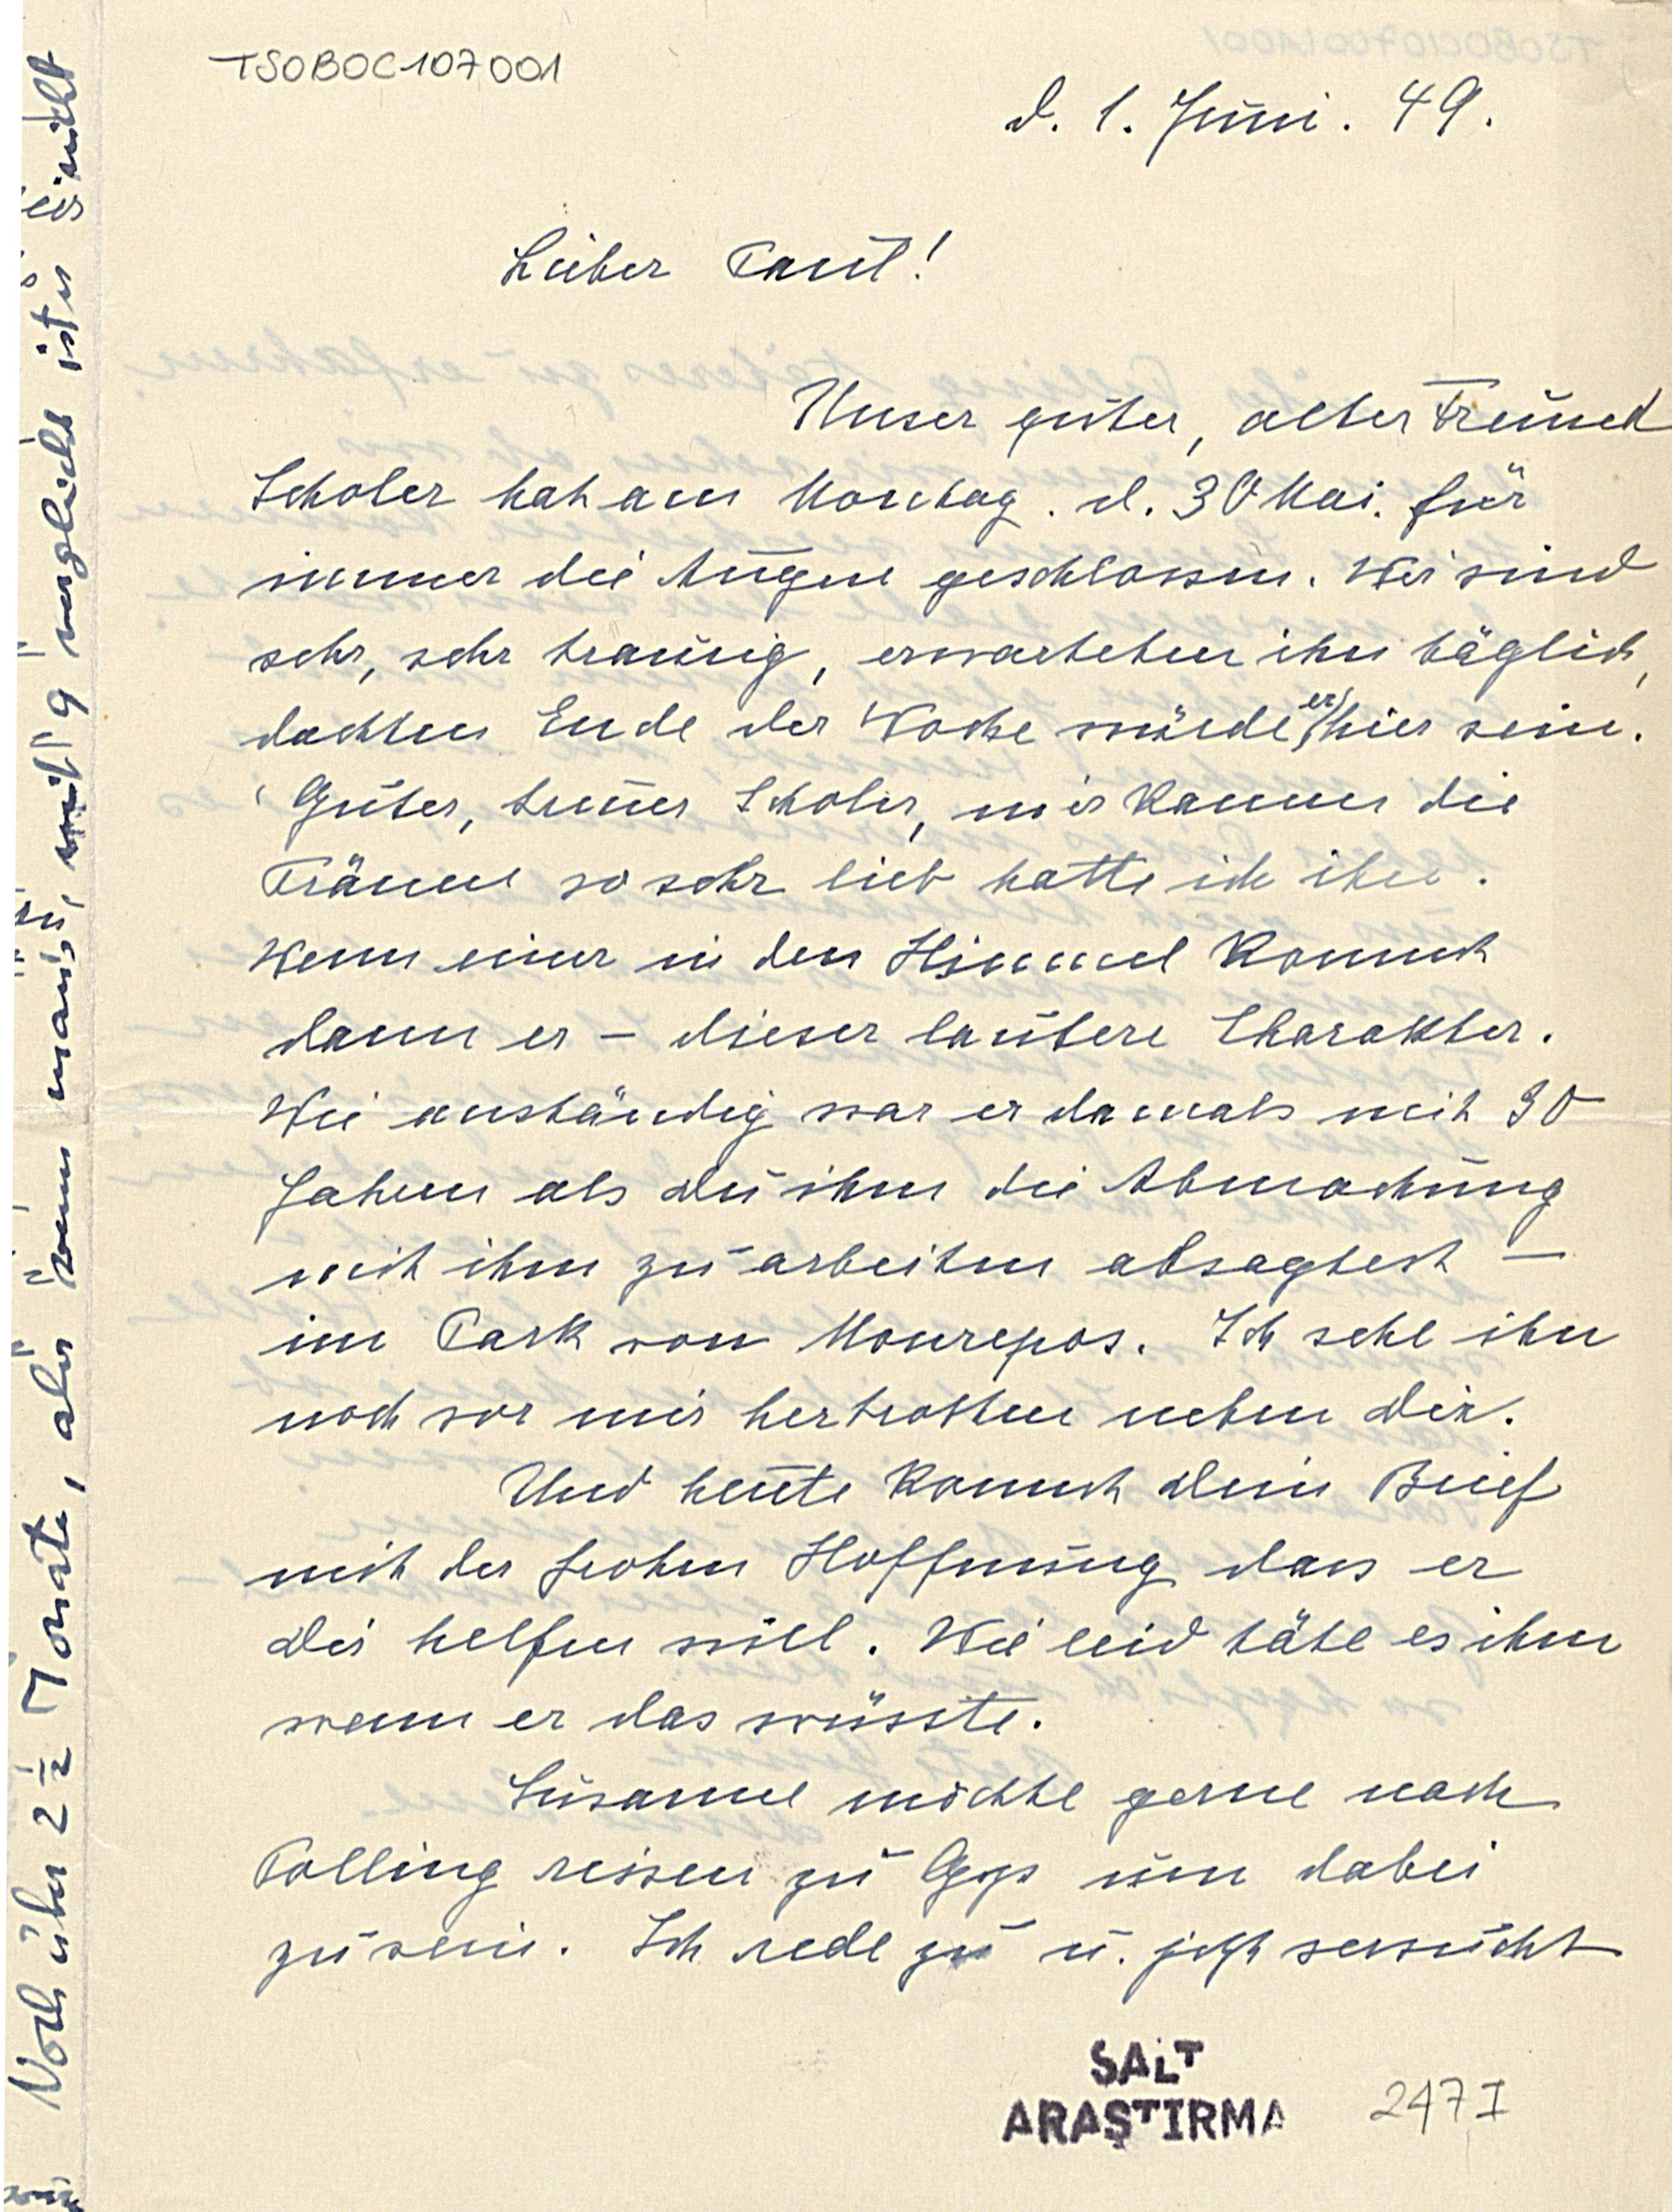 TSOBOC107001
d. 1. Juni. 49.
Lieber Paul!
Unser guter, alter Freund
Scholer hat am Montag. d. 30 Mai. für
immer die Augen geschlossen. Wir sind
sehr, sehr traurig, erwarteten ihn täglich,
dachten Ende der Woche würde er hier sein.
Guter, treuer Scholer, mir kamen die
Tränen so sehr lieb hatte ich ihn.
Wenn einer in den Himmel kommt
dann er – dieser lautere Charakter.
Wie anständig war er damals mit 30
Jahren als du ihm die Abmachung
mit ihm zu arbeiten absagtest –
im Park von Monrepos. Ich sehe ihn
noch vor mir hertrotten neben dir.
Und heute kommt dein Brief
mit der frohen Hoffnung dass er
dir helfen will. Wie leid täte es ihm
wenn er das wüsste.
Susanne möchte gerne nach
Polling reisen zu Gys um dabei
zu sein. Ich rede zu u. jetzt versucht
SALT
ARAŞTIRMA
247 I
Noch über 2 1/2 Monate, aber wenn man's, mit 9 vergleicht ist es nicht